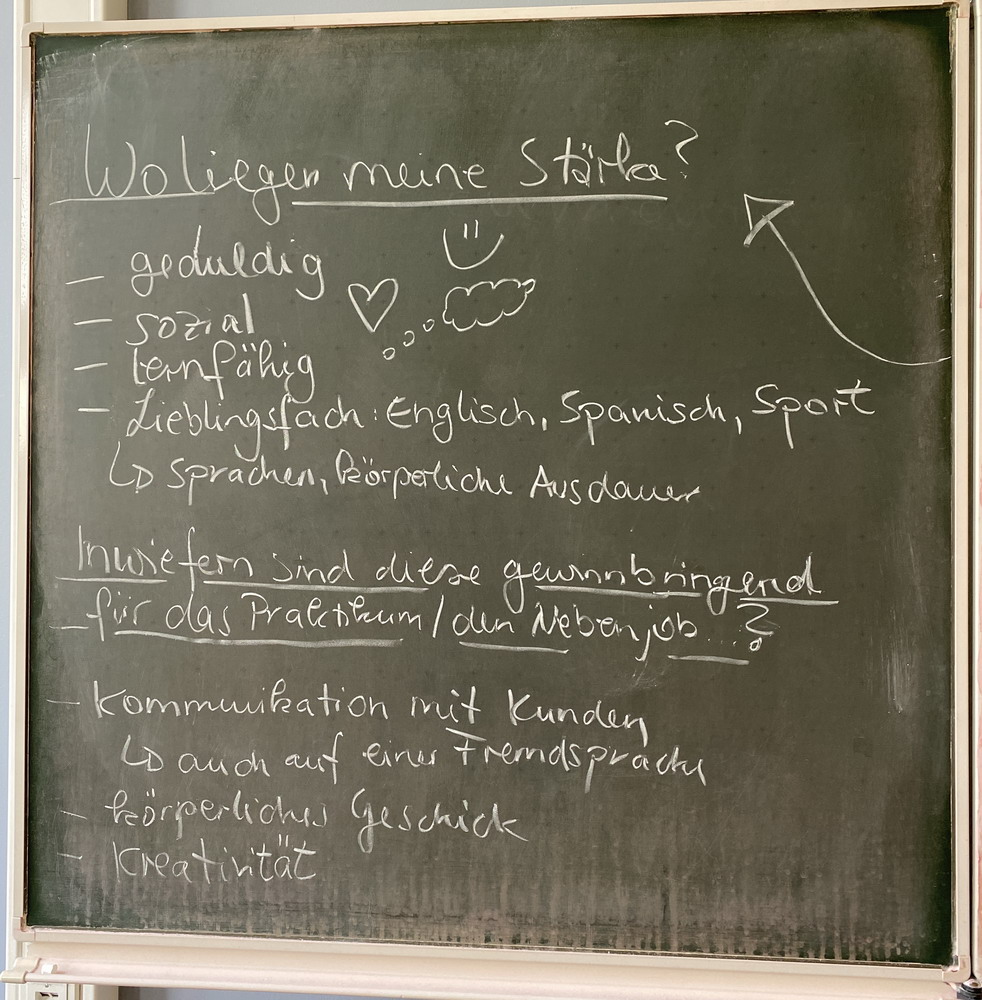 Wo liegen meine Stärke?
- geduldig
- sozial
- lernfähig
- Lieblingsfach: Englisch, Spanisch, Sport
↳ Sprachen, körperliche Ausdauer
Inwiefern sind diese gewinnbringend
für das Praktikum / den Nebenjob...?
- Kommunikation mit Kunden
↳ auch auf einer Fremdsprache
- körperliches Geschick
- Kreativität